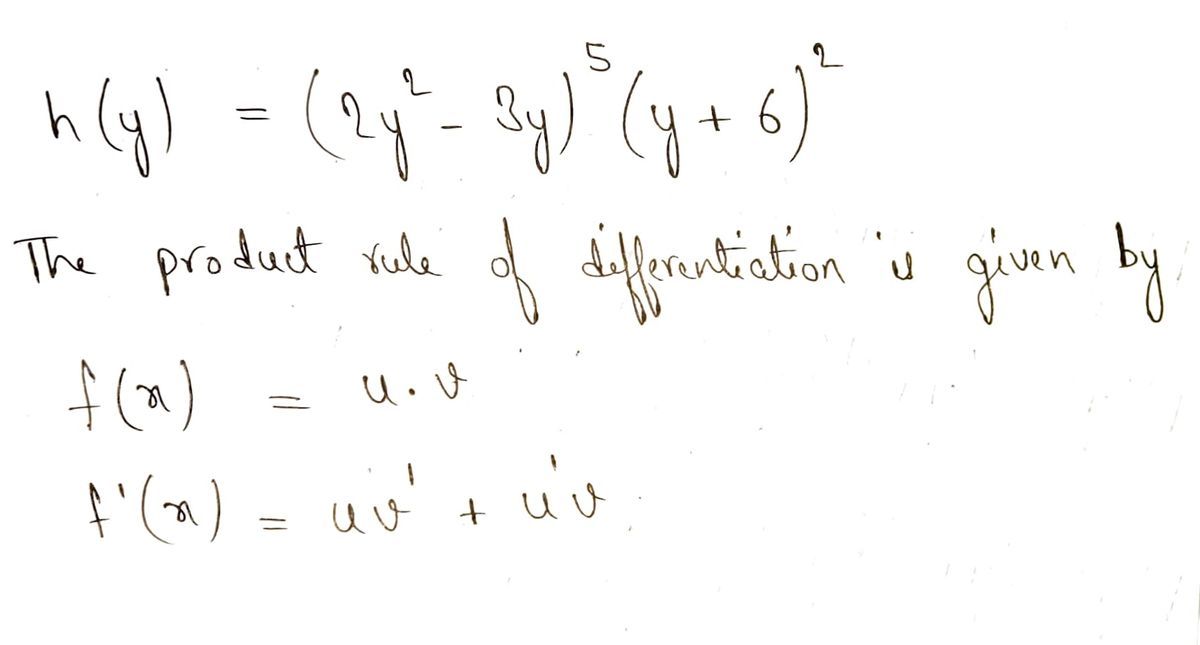 h(y) = (2y² - 3y)⁵ (y + 6)²
The product rule of differentiation is given by
f(x) = u.v
f'(x) = uv' + u'v